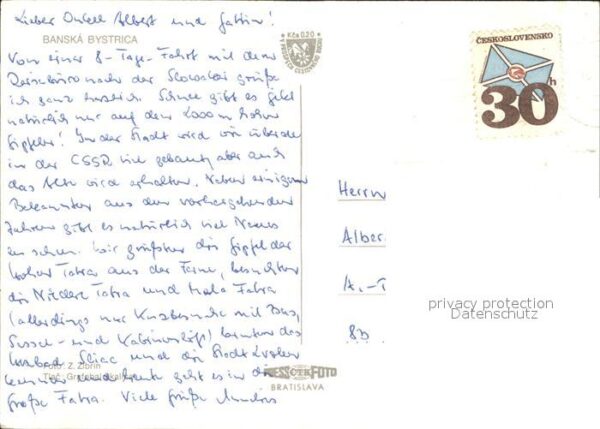 Lieber Onkel Albert und Gattin!
BANSKÁ BYSTRICA
Von einer 8-Tage-Fahrt mit dem
Reisebüro nach der Slowakei grüße
ich ganz herzlich. Schnee gibt es jetzt
natürlich nur auf dem 2000 m hohen
Gipfel! In der Stadt wird wie überall
in der CSSR viel gebaut, aber auch
das Alte wird erhalten. Neben einigem
Bekannten aus den vorhergehenden
Jahren gibt es natürlich viel Neues
zu sehen. Wir grüßten die Gipfel der
Hohen Tatra aus der Ferne, besuchten
die Niedere Tatra und Mala Fatra
(allerdings nur mit Bus,
Sessel- und Kabinenlift) lernten das
Sliac und die Stadt Zvolen
Foto: Z. Zibrín
kennen und heute geht es in die
Tlač:
Große Fatra. Viele Grüße
Kčs 0,20
ČESKOSLOVENSKO
30h
Herrn
Alber.
A.-T
8D
privacy protection
Datenschutz
PRESSFOTO
BRATISLAVA